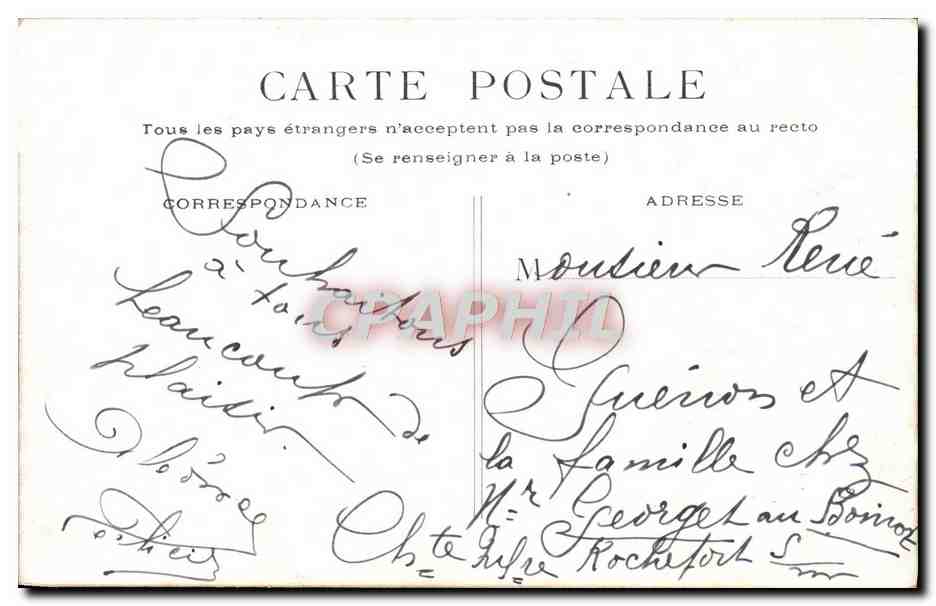 CARTE POSTALE
Tous les pays étrangers n'acceptent pas la correspondance au recto
(Se renseigner à la poste)
CORRESPONDANCE
Souhaitons
à tous
beaucoup de
plaisir
ADRESSE
Monsieur René
Guénon et
la famille chez
Mr Georget au
Chte Infre Rochefort S/
CPAPHIL